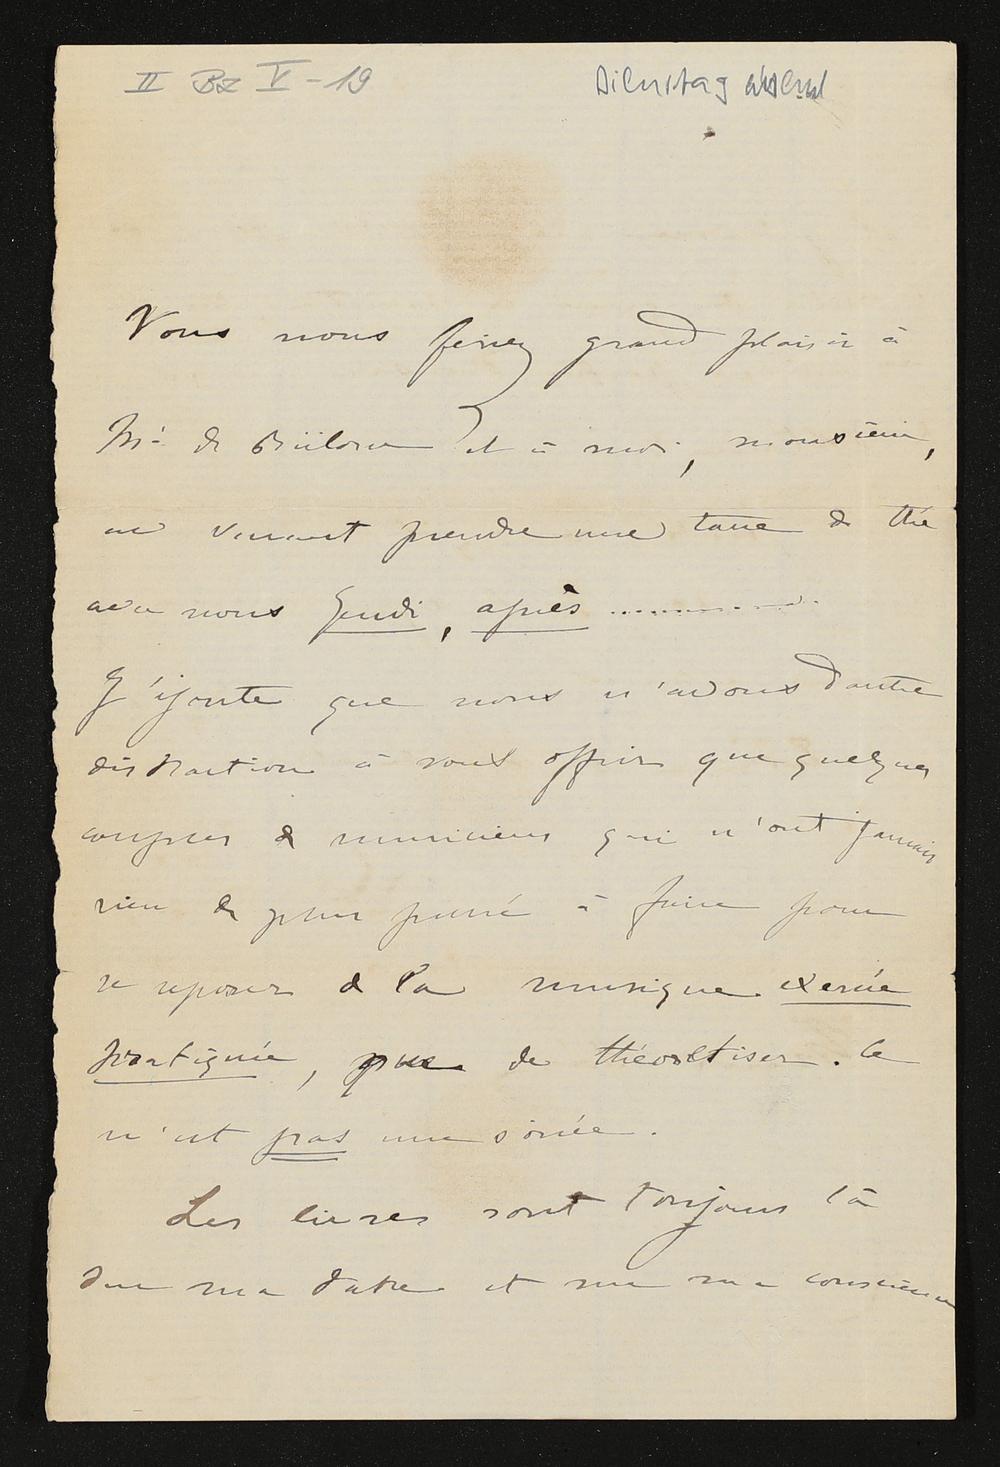 II Bz V - 19
Dienstag abend
Vous nous feriez grand plaisir à
Mr de Bülow et à moi, monsieur,
en venant prendre une tasse de thé
avec nous Jeudi, après ..............
J'ajoute que nous n'avons d'autre
distraction à vous offrir que quelques
couples de musiciens qui n'ont jamais
rien de plus pressé à faire pour
se reposer de la musique exercée
pratiquée, que de théoretiser. Ce
n'est pas une soirée.
Les livres sont toujours là
sur ma table et sur ma conscience